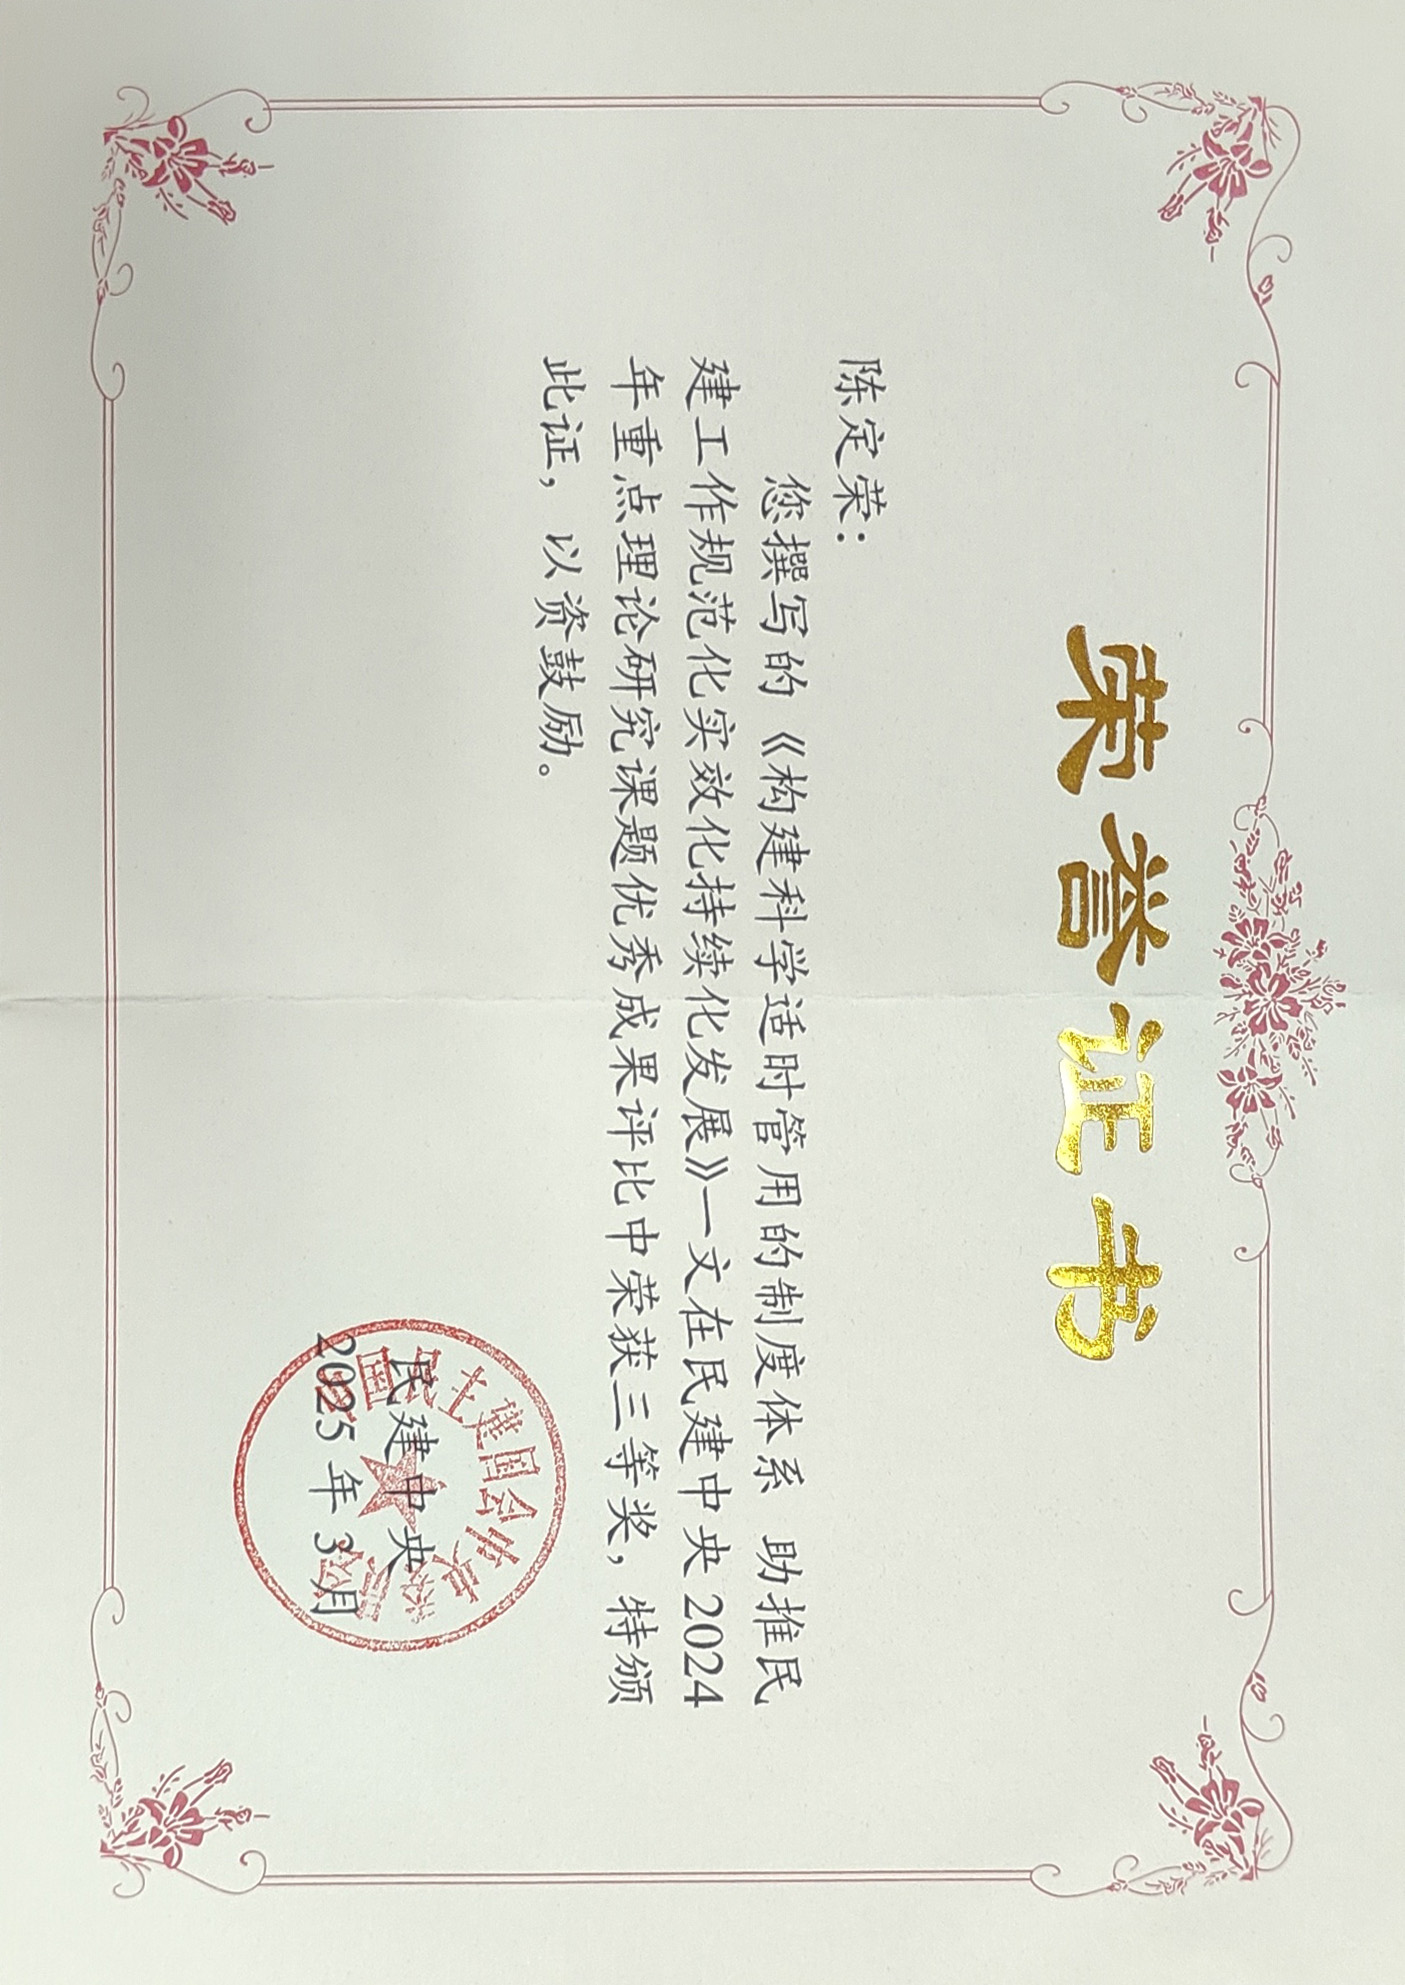 荣誉证书
陈定荣：
您撰写的《构建科学适时管用的制度体系 助推民
建工作规范化实效化持续化发展》一文在民建中央 2024
年重点理论研究课题优秀成果评比中荣获三等奖，特颁
此证，以资鼓励。
民建中央
2025 年 3 月